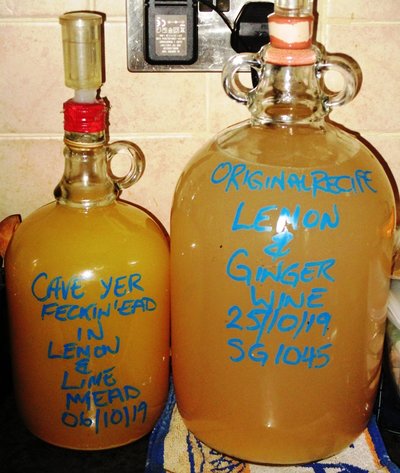 CAVE YER
FECKIN'EAD
IN
LEMON
&
LIME
MEAD
06/10/19
ORIGINAL RECIPE
LEMON
&
GINGER
WINE
25/10/19
SG 1045